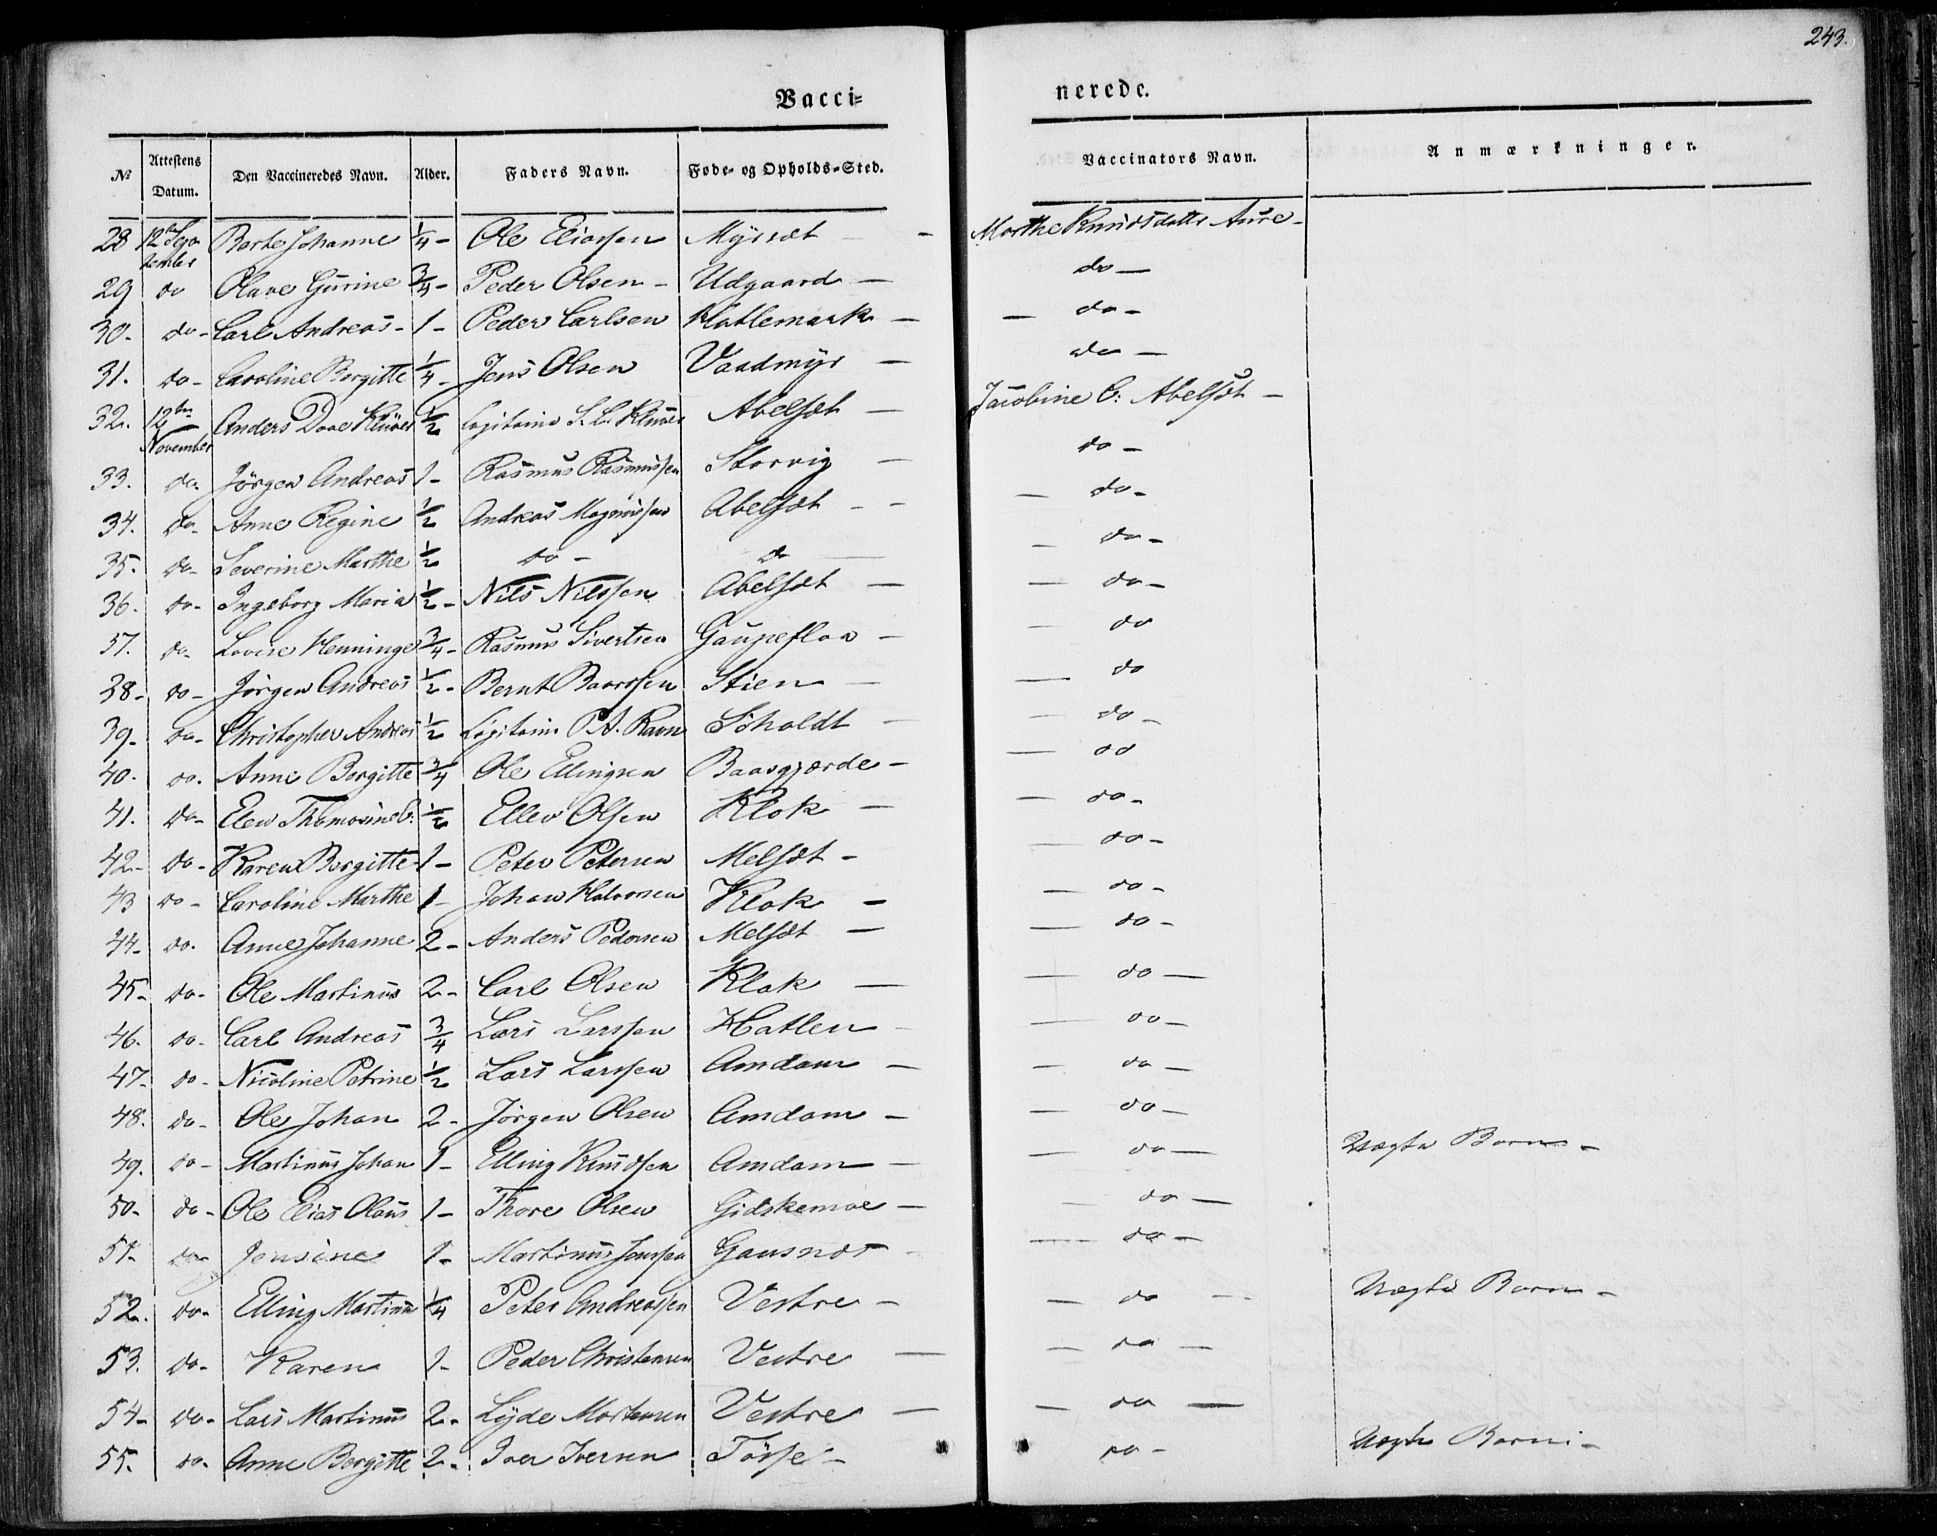 243.
Vacci= nerede.
No Attestens Datum. Den Vaccineredes Navn. Alder. Faders Navn. Føde- og Opholds-Sted. Vaccinators Navn. Anmærkninger.
28 12te September Berte Johanne 1/4 - Ole Eliassen Myrsæt - Marthe Knudsdatter Aure -
29 do Olave Gurine 3/4 - Peder Olsen - Udgaard - do -
30. do - Carl Andreas - 1 - Peder Carlsen Hatlemark - - do -
31. do - Caroline Bergitte 1/4 - Jens Olsen Vaadmyr - do -
32. 12te November Anders Daae Klüver 1/2 Capitaine S. L. Klüver Abelsæt - Jacobine C: Abelsæt -
33. do. Jørgen Andreas 1 - Rasmus Rasmussen Storvig - do -
34. do - Anne Regine 1/2 Andreas Magnussen Abelsæt - - - do -
35. do - Severine Marthe 1/2 do - do - - do -
36. do - Ingeborg Maria 1/2 - Nils Nilssen Abelsæt - - do -
37. do - Lovise Henninge 3/4 - Rasmus Sivertsen Gaupefloa - - do
38 - do - Jørgen Andreas 1/2 - Bernt Baarssen Stien - - do
39 - do - Christopher Andreas 1/2 Capitaine P. A. Ravn Søholdt - - do -
40. do. Anne Bergitte 3/4 Ole Ellingsen Baasgjærde - - do
41. do - Elen Thomasine C. 1/2 Ellev Olsen Klok - - do -
42 - do - Karen Bergitte - 1 - Peter Petersen Melsæt - - do -
43 do - Caroline Marthe 1 - Johan Halvorsen Klok - - do -
44 - do. Anne Johanne 2 - Anders Pedersen Melsæt - - do -
45 - do - Ole Martinus 2 - Carl Olsen Klok - - do -
46. do - Carl Andreas 3/4 Lars Larssen Hatlen - - do -
47 - do - Nicoline Petrine 1/2 Lars Larssen Amdam - - do -
48. do - Ole Johan 2 - Jørgen Olsen Amdam - - do -
49. do - Martinus Johan 1 - Elling Knudsen Amdam - - do - Uægte Barn -
50 - do - Ole Elias Olaus 1 - Thore Olsen Gidskemoe - - do -
51 - do - Jensine 1 - Martinus Jenssen Gausnæs - - do -
52. do - Elling Martinus 1/4 Peter Andreassen Vestre - - do - Uægte Barn -
53. do - Karen 1 - Peder Christensen Vestre - - do -
54 - do - Lars Martinus 2 - Lyde Mortensen Vestre - - do -
55. do - Anne Bergitte 2 - Iver Iversen Tøsse - do - Uægte Barn -